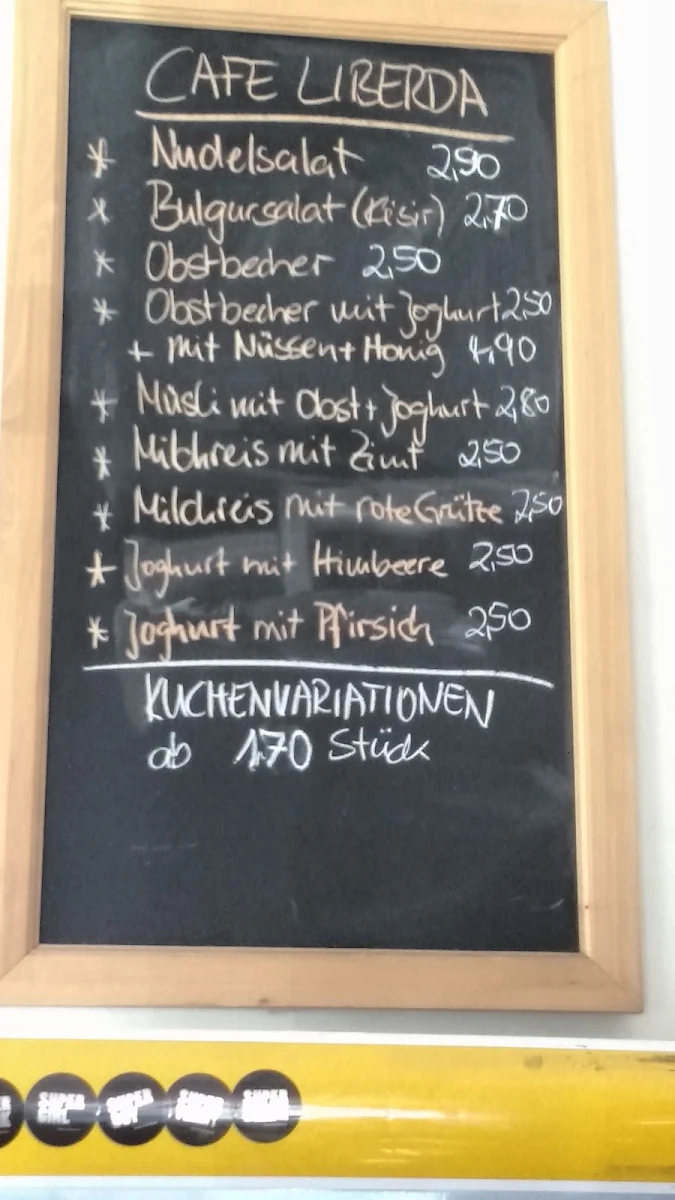 CAFE LIBERDA
* Nudelsalat 2,90
* Bulgursalat (Kisir) 2,70
* Obstbecher 2,50
* Obstbecher mit Joghurt 2,50
+ mit Nüssen + Honig 4,90
* Müsli mit Obst + Joghurt 2,80
* Milchreis mit Zimt 2,50
* Milchreis mit rote Grütze 2,50
* Joghurt mit Himbeere 2,50
* Joghurt mit Pfirsich 2,50
KUCHENVARIATIONEN
ab 1,70 Stück
SUPER